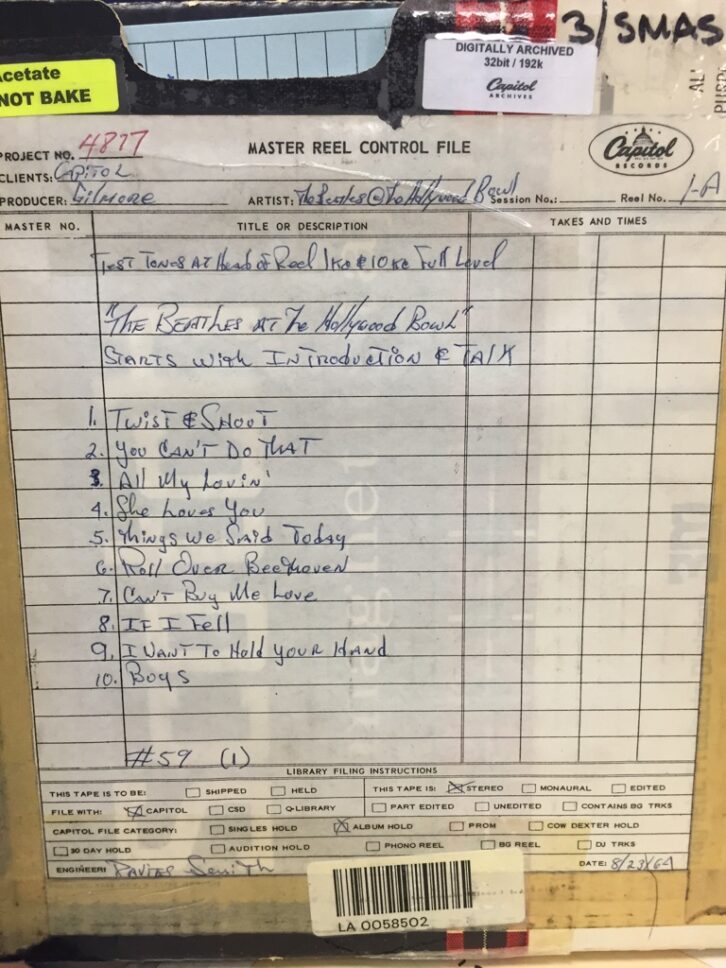 3/SMAS
Acetate
NOT BAKE
DIGITALLY ARCHIVED
32bit / 192k
Capitol
ARCHIVES
PROJECT NO. 4877
MASTER REEL CONTROL FILE
Capitol
RECORDS
CLIENTS: CAPITOL
PRODUCER: Gilmore
ARTIST: The Beatles @ The Hollywood Bowl
Session No.:
Reel No. 1-A
MASTER NO. TITLE OR DESCRIPTION TAKES AND TIMES
Test Tones At Head of Reel 1KC & 10KC Full Level
"The Beatles at The Hollywood Bowl"
Starts with Introduction & Talk
1. Twist & Shout
2. You Can't Do That
3. All My Lovin'
4. She Loves You
5. Things We Said Today
6. Roll Over Beethoven
7. Can't Buy Me Love
8. If I Fell
9. I Want To Hold Your Hand
10. Boys
#59 (1)
LIBRARY FILING INSTRUCTIONS
THIS TAPE IS TO BE: SHIPPED HELD THIS TAPE IS: STEREO MONAURAL EDITED
FILE WITH: CAPITOL CSD Q-LIBRARY PART EDITED UNEDITED CONTAINS BG TRKS
CAPITOL FILE CATEGORY: SINGLES HOLD ALBUM HOLD PROM COW DEXTER HOLD
30 DAY HOLD AUDITION HOLD PHONO REEL BG REEL DJ TRKS
ENGINEER:
DATE: 8/23/64
LA 0058502